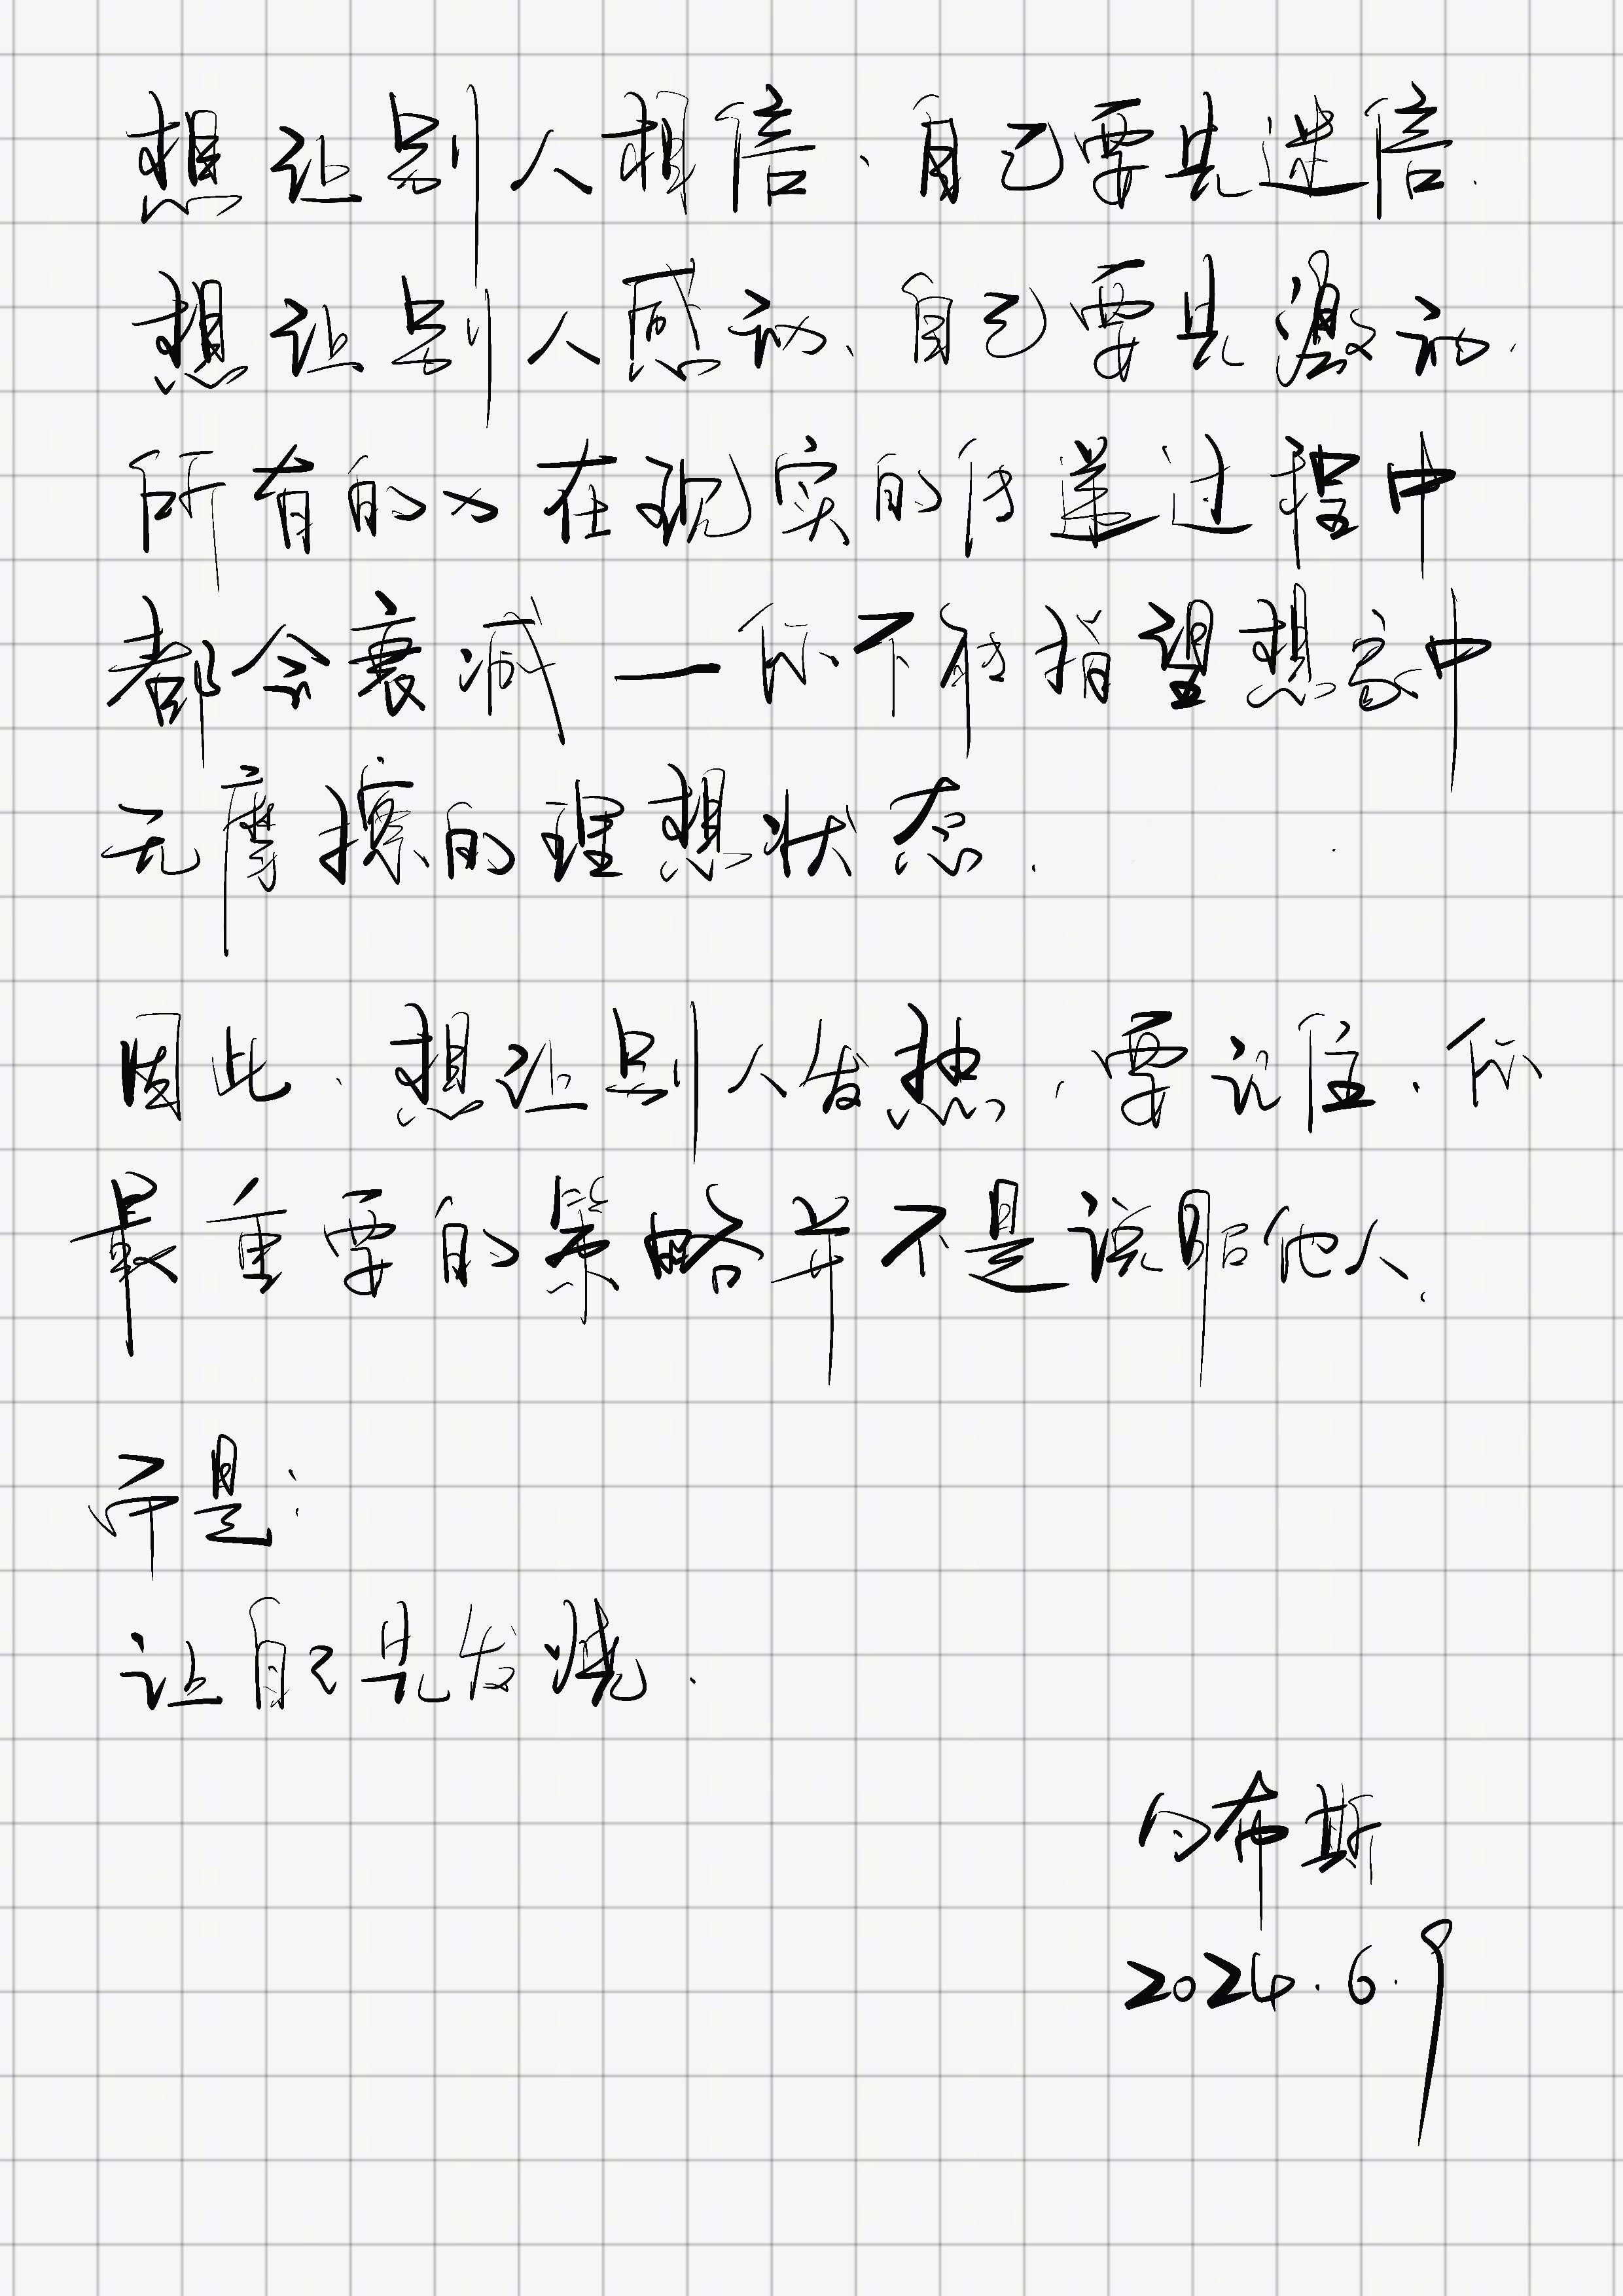 想让别人相信、自己要先迷信.
想让别人感动、自己要先激动.
所有的力在现实的传递过程中
都会衰减—你不能指望想象中
无摩擦的理想状态.
因此、想让别人发热,要记住,你
最重要的策略并不是说服他人,
而是:
让自己先发烧.
布斯
2024.6.9